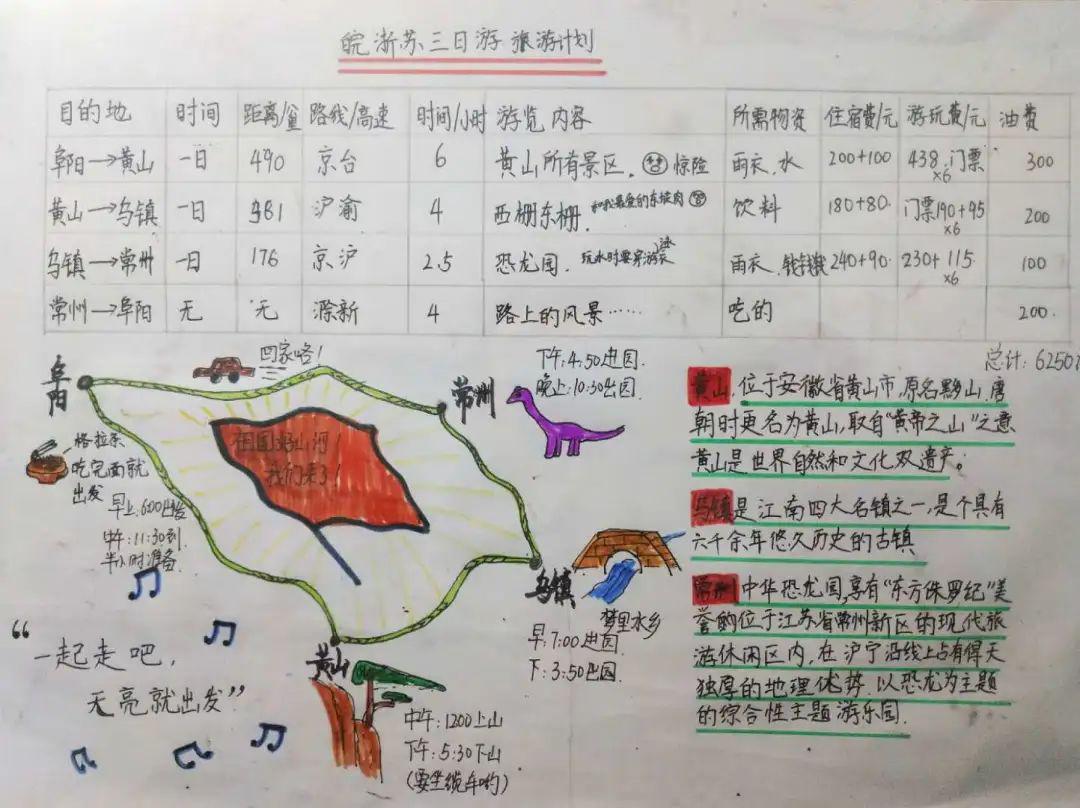 皖浙苏三日游旅游计划
目的地 时间 距离/公里 路线/高速 时间/小时 游览内容 所需物资 住宿费/元 游玩费/元 油费
阜阳→黄山 一日 490 京台 6 黄山所有景区。惊险 雨衣、水 200+100 438、门票×6 300
黄山→乌镇 一日 381 沪渝 4 西栅东栅。和我最爱的东坡肉 饮料 180+80. 门票190+95×6 200
乌镇→常州 一日 176 京沪 2.5 恐龙园.玩水时要穿游泳衣 雨衣、 240+90. 230+115×6 100
常州→阜阳 无 无 滁新 4 路上的风景…… 吃的 200.
总计:6250
阜阳
回家咯!
常州
下午:4:50进园.
晚上:10:30出园.
祖国好山河!
我们来了!
格拉条
吃完面就
出发
早上:6:00出发
中午:11:30到.
半小时准备
乌镇
梦里水乡
早:7:00进园.
下:3:50出园.
黄山
中午:1200上山
下午:5:30下山
(要坐缆车哟)
“一起走吧,
天亮就出发”
黄山,位于安徽省黄山市,原名黟山,唐
朝时更名为黄山,取自“黄帝之山”之意
黄山是世界自然和文化双遗产。
乌镇是江南四大名镇之一,是个具有
六千余年悠久历史的古镇
常州中华恐龙园,享有“东方侏罗纪”美
誉的位于江苏省常州新区的现代旅
游休闲区内,在沪宁沿线上占有得天
独厚的地理优势.以恐龙为主题
的综合性主题游乐园.